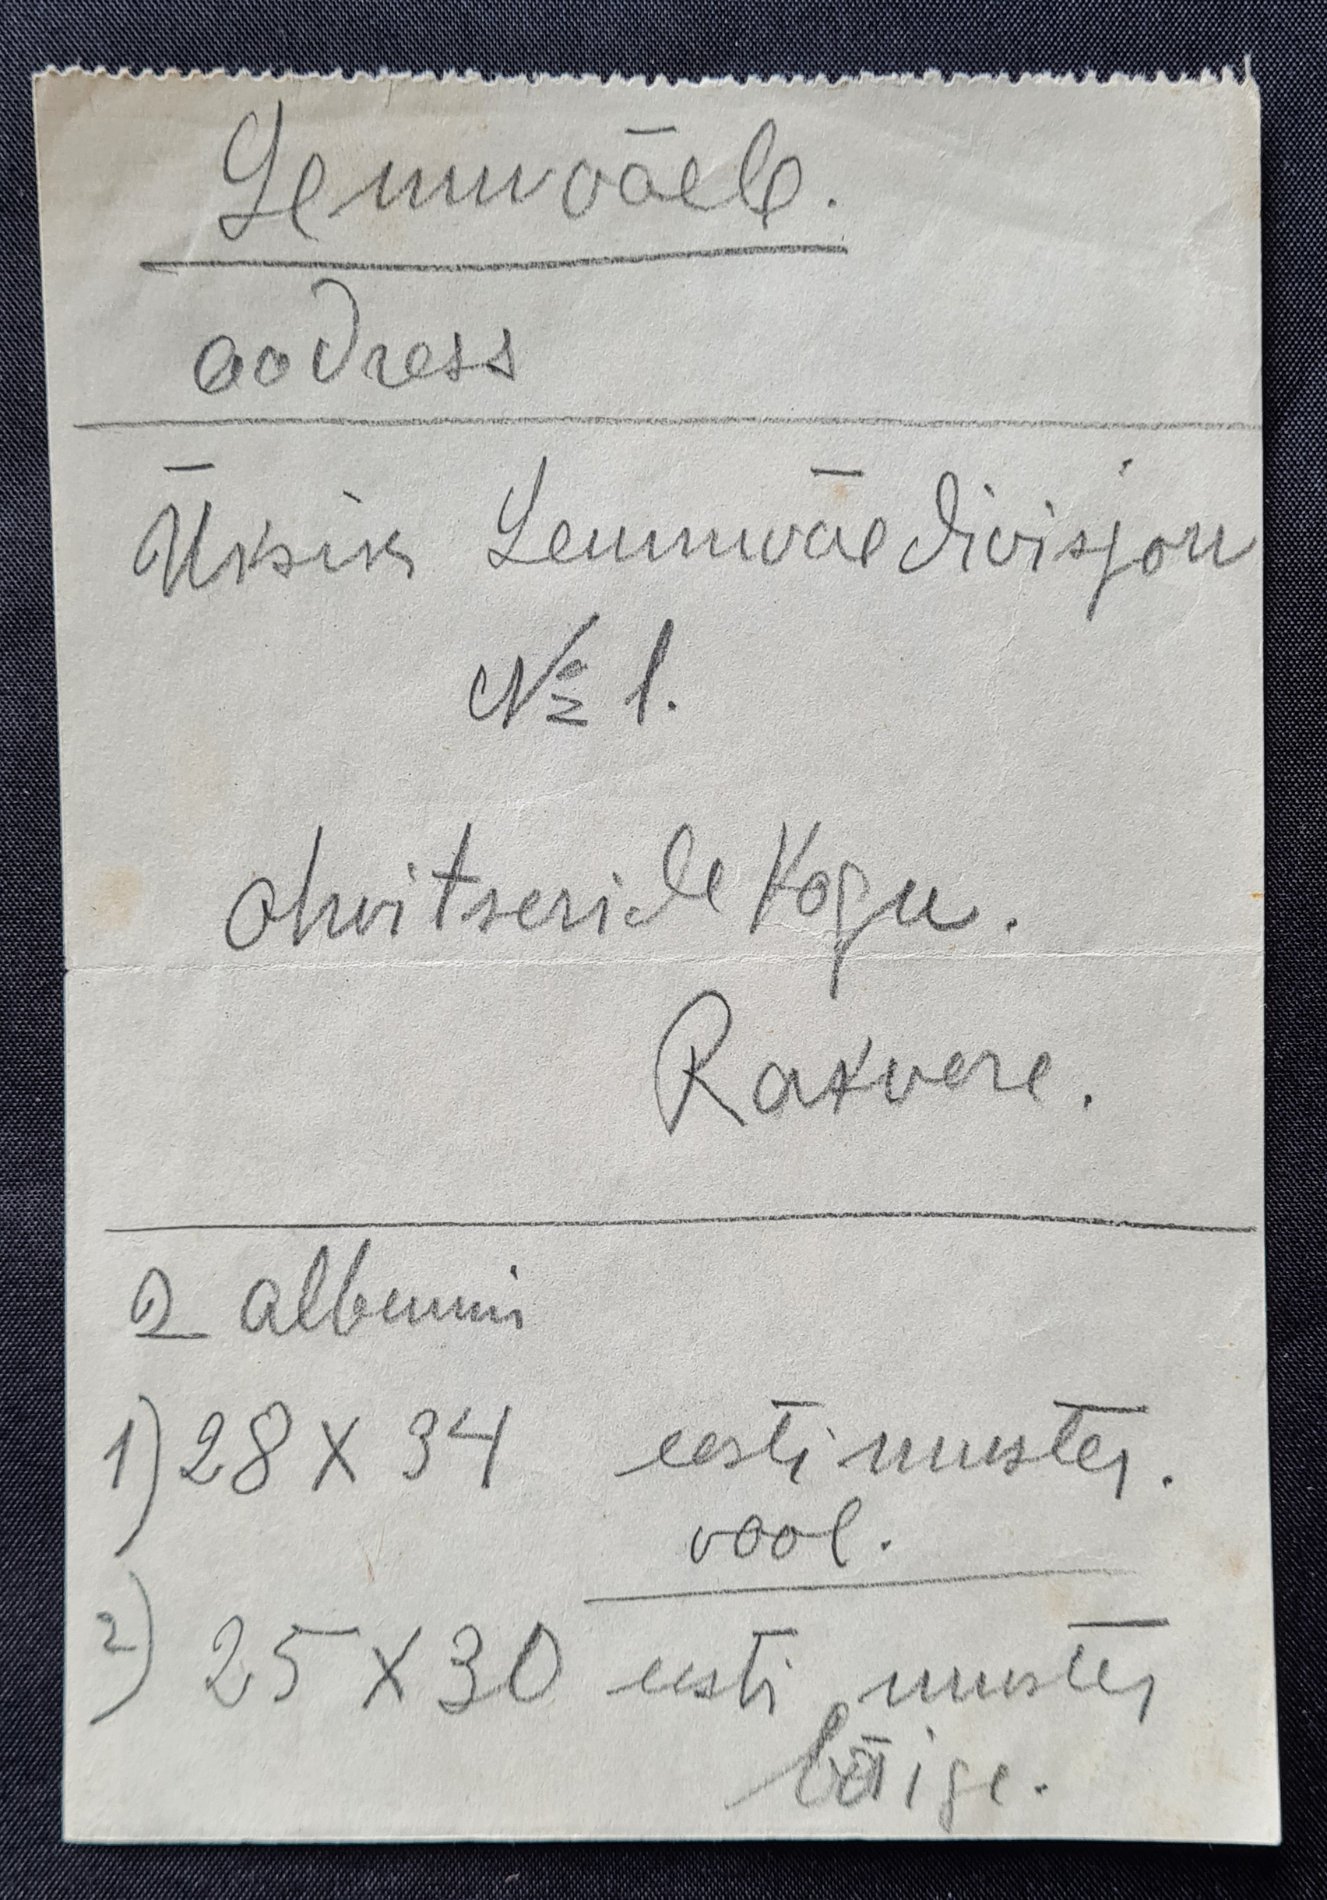 Lennuväele.
aadress
Üksik Lennuväe divisjon
№ 1.
ohvitseride Kogu.
Rakvere.
2 albumi
1) 28 x 34 eesti muster.
vool.
2) 25 x 30 eesti muster
läige.